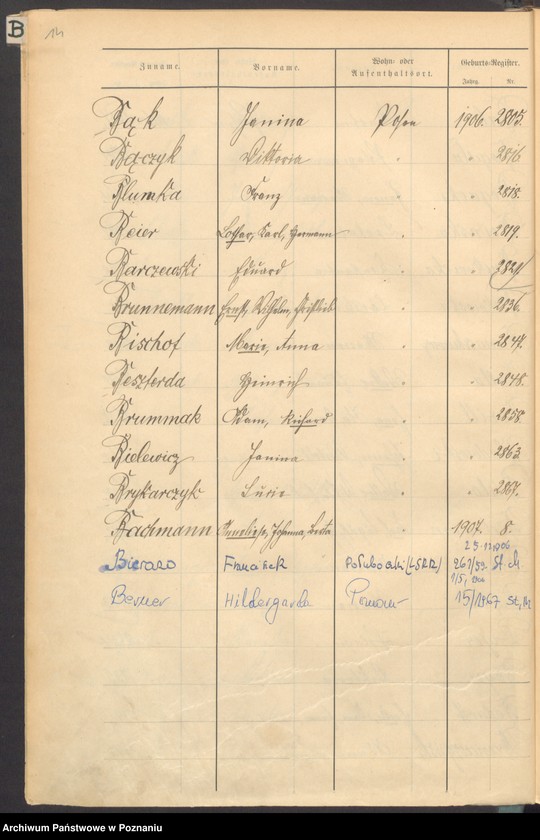 B 14
Zuname. Vorname. Wohn- oder Aufenthaltsort. Geburts-Register.
Jahrg. Nr.
Bąk Janina Posen 1906. 2805.
Bączyk Viktoria " 2816
Blumka Franz " 2818.
Beier Lothar, Karl, Hermann 2819.
Barczewski Eduard " 2821
Brunnemann Ernst, Wilhelm, 2836.
Bischof Marie, Anna " 2847.
Beszterda Heinrich " 2848.
Brummak Adam, Richard " 2858
Bielewicz Janina " " 2863
Brykarczyk " " 2867.
Bachmann Anneliese, Johanna, Berta 1907. 8.
23.12.1906
Franciszek 261/59.
Besuer Hildergarda Poznań 15/1967
Archiwum Państwowe w Poznaniu